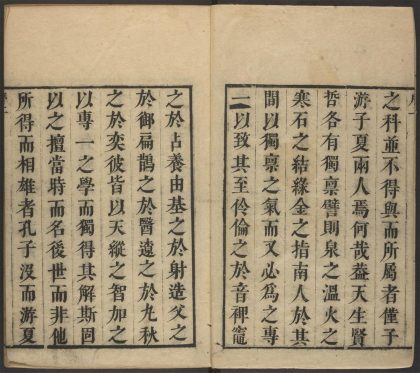 之科並不得與而所屬者僅子
游子夏兩人焉何哉葢天生賢
哲各有獨稟譬則泉之溫火之
寒石之結緣金之指南人於其
間以獨稟之氣而又必為之專
一以致其至伶倫之於音裨竈
之於占養由基之於射造父之
於御扁鵲之於醫遼之於丸秋
之於奕彼皆以天縱之智加之
以專一之學而獨得其解斯固
以之擅當時而名後世而非他
所得而相雄者孔子沒而游夏